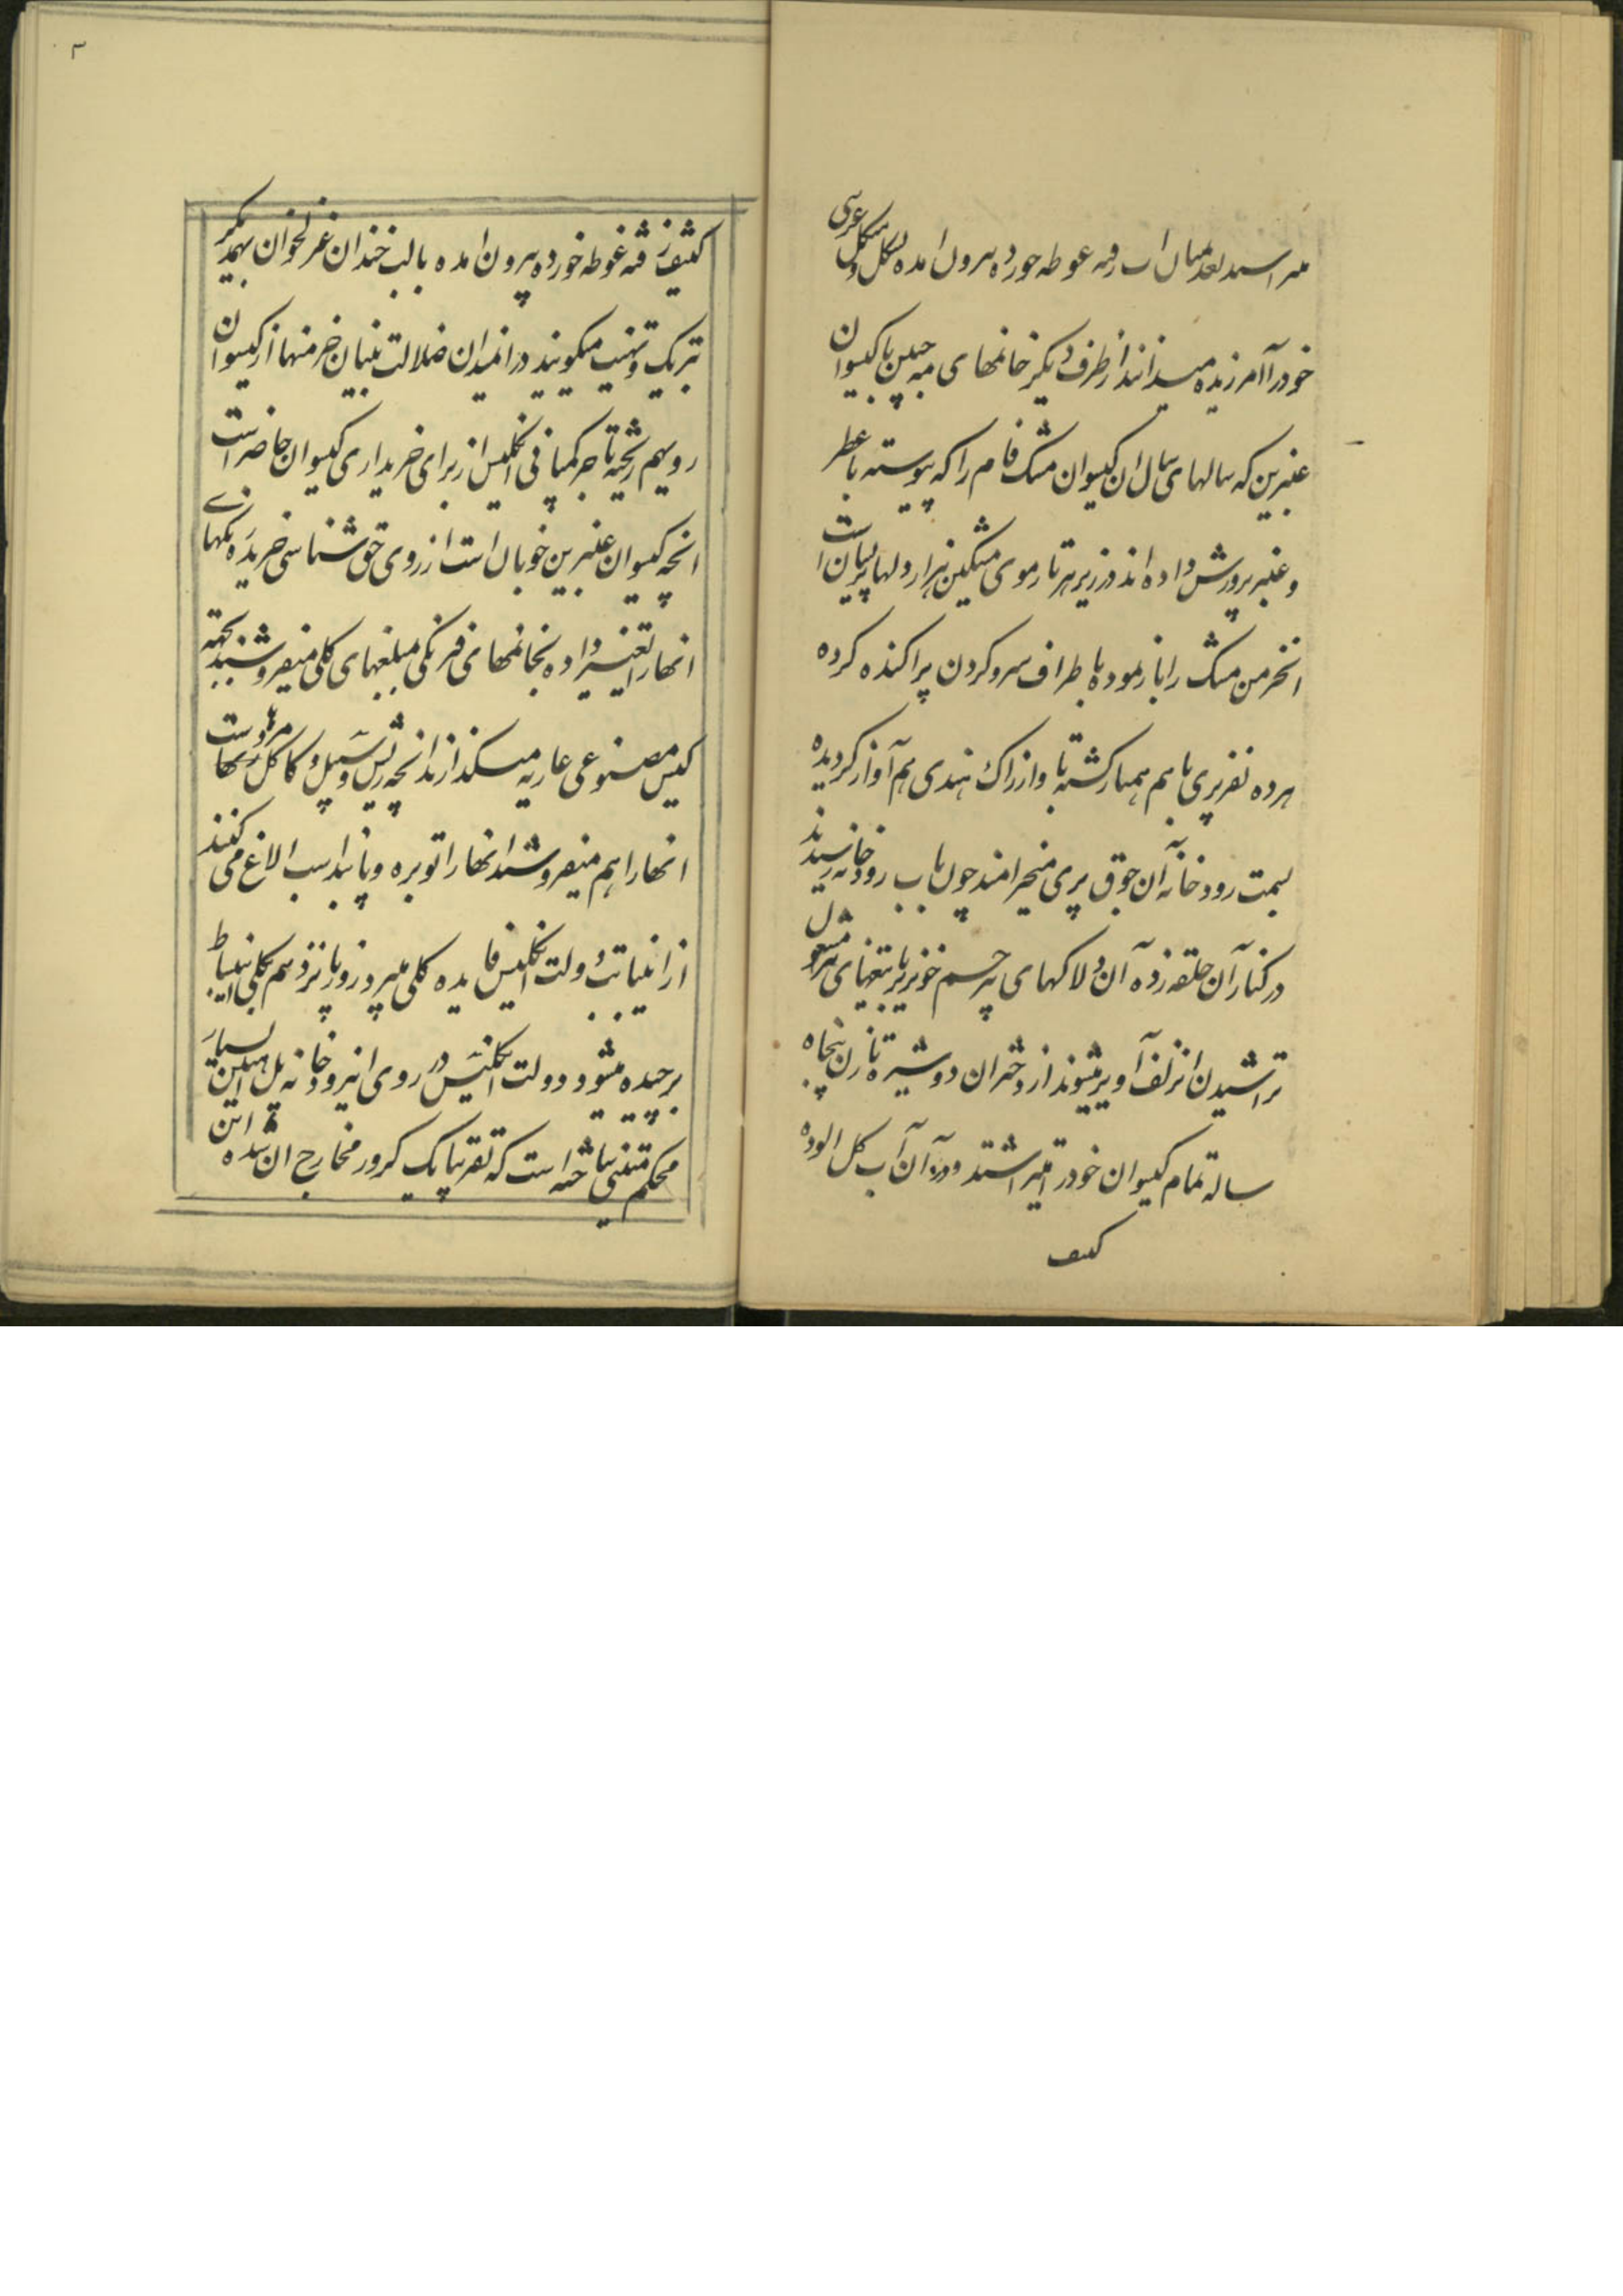 میتراشند بعد میان آب رفته غوطه خورده بیرون امده بشکل و شکل غریبی
خود را آمرزیده میدانند از طرف دیگر خانمهای مه جبین با گیسوان
عنبرین که سالهای سال ان گیسوان مشک فام را که پیوسته با عطر
و عنبر پرورش داده اند در زیر هر تار موی مشکین هزار دلها پریشان است
انخرمن مشک را باز نموده باطراف سر و گردن پراکنده کرده
هر ده نفر پری با هم همبار گشته با واز راک هندی هم آواز گردیده
بسمت رودخانه آن جوق پری میخرامند چون باب رودخانه رسیدند
در کنار آن حلقه زده آن دلاکهای بیرحم خونریز با تیغهای تیز مشغول
تراشیدن انزلف آویز میشوند از دختران دوشیزه تا زن پنجاه
ساله تمام گیسوان خود را میتراشند و در آن آب گل الوده
کثیف
۳
کثیف رفته غوطه خورده بیرون امده بالب خندان غزلخوان بهمدیگر
تبریک و تهنیت میگویند در انمیدان ضلالت بنیان خرمنها از گیسوان
رویهم ریخته تاجر کمپانی انگلیس از برای خریداری گیسوان حاضر است
انچه گیسوان عنبرین خوبان است از روی حق شناسی خریده رنگهای
انها را تغییر داده بخانمهای فرنگی مبلغهای کلی میفروشند بجهته
گیس مصنوعی عاریه میگذارند انچه ریش و سیبل و کاکل مردهاست
انها را هم میفروشند انها را توبره و پابند اسب الاغ می کنند
از اینبابت دولت انگلیس فایده کلی میبرد روز پانزدهم بکلی این بساط
برچیده میشود دولت انگلیس در روی انیرودخانه پل آهنین بسیار
محکم متینی ساخته است که تقریبا یک کرور مخارج ان شده است